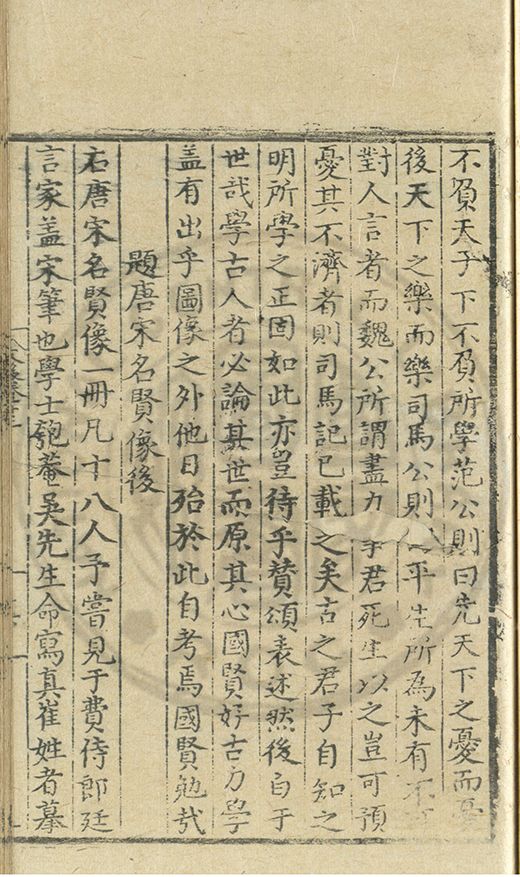 不負天子下不負所學范公則曰先天下之憂而憂
後天下之樂而樂司馬公則平生所為未有不
對人言者而魏公所謂盡力事君死生以之豈可預
憂其不濟者則司馬記已載之矣古之君子自知之
明所學之正固如此亦豈待乎賛頌表述然後白于
世哉學古人者必論其世而原其心國賢好古力學
盖有出乎圖像之外他日殆於此自考焉國賢勉㢤
題唐宋名賢像後
右唐宋名賢像一冊凡十八人予嘗見于費侍郎廷
言家盖宋筆也學士匏菴吳先生命寫真崔姓者摹